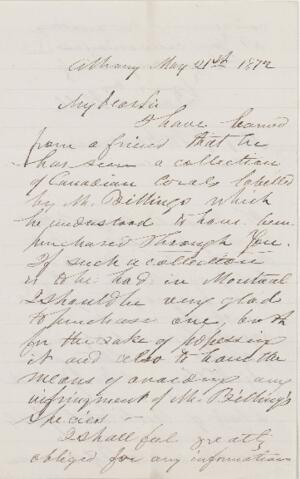 Albany May 21st 1872
My dear Sir
I have learned
from a friend that he
has seen a collection
of Canadian Corals labelled
by Mr. Billings which
he understood to have been
purchased through You.
If such a collection
is to be had in Montreal
I should be very glad
to purchase one, both
for the sake of possessing
it and also to have the
means of avoiding any
infringment of Mr. Billing's
species. —
I shall feel greatly
obliged for any information